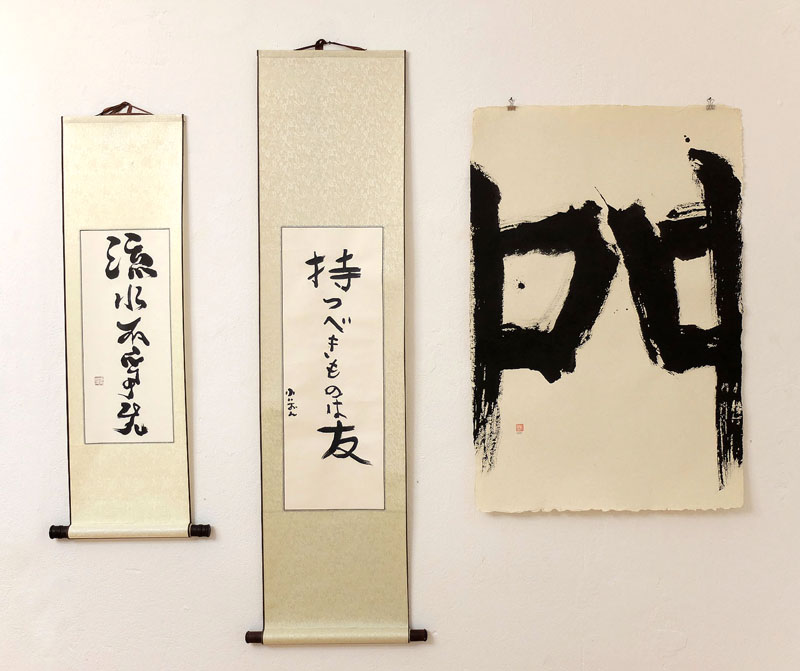 流水不争先
持つべきものは友
門